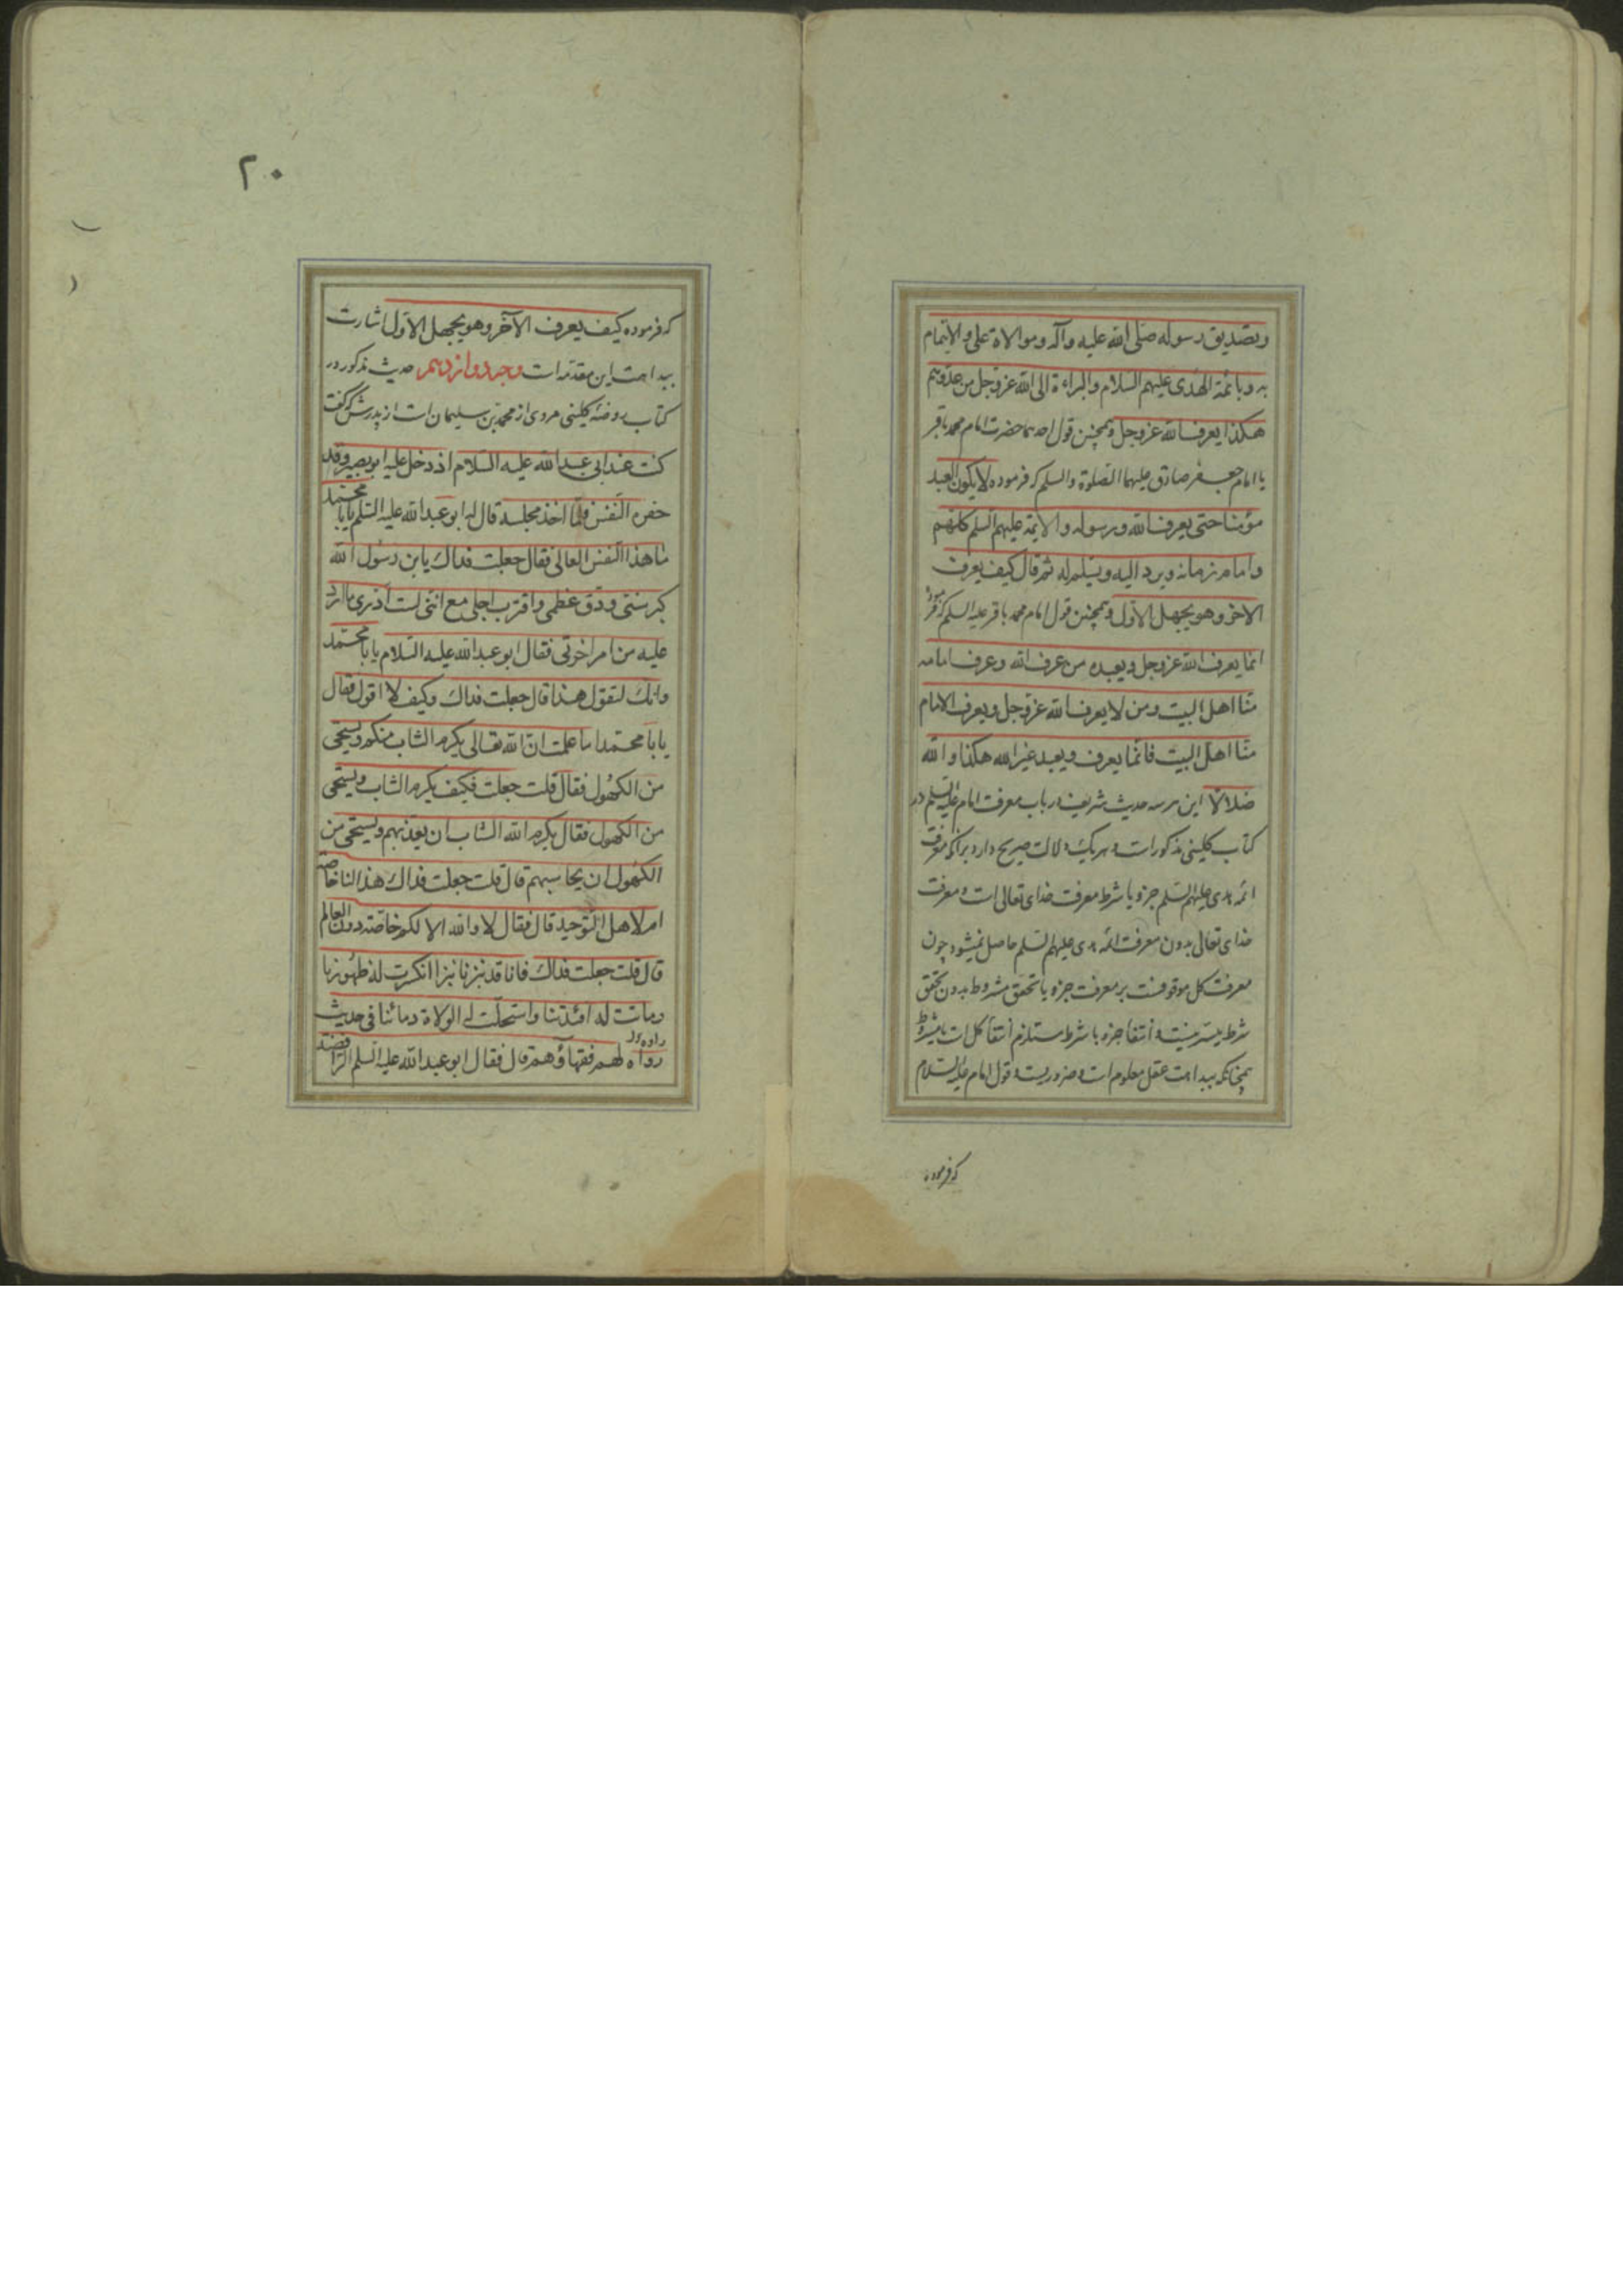 وبتصدیق رسوله صلی الله علیه وآله وموالاة علی والایتمام
به وبائمة الهدی علیهم السلام والبراءة الی الله عزوجل من عدوهم
هکذا یعرف الله عزوجل وهمچنین قول احدهما حضرت امام محمد باقر
یا امام جعفر صادق علیهما الصلوة والسلم که فرموده لایکون العبد
مؤمنا حتی یعرف الله ورسوله والایمة علیهم السلم کلهم
وامام زمانه ویرد الیه ویسلم له ثم قال کیف یعرف
الاخر وهو یجهل الاول وهمچنین قول امام محمد باقر علیه السلم که فرموده
انما یعرف الله عزوجل ویعبده من عرف الله وعرف امامه
منا اهل البیت ومن لا یعرف الله عزوجل ویعرف الامام
منا اهل البیت فانما یعرف ویعبد غیر الله هکذا والله
ضلالا این هر سه حدیث شریف در باب معرفت امام علیه السلم در
کتاب کلینی مذکور است و هر یک دلالت صریح دارد بر آنکه معرفت
ائمه هدی علیهم السلم جزو یا شرط معرفت خدای تعالی است و معرفت
خدای تعالی بدون معرفت ائمه هدی علیهم السلم حاصل نمیشود چون
معرفت کل موقوفست بر معرفت جزو یا تحقق مشروط بدون تحقق
شرط میسر نیست و انتفا جزو یا شرط مستلزم انتفا کل است یا مشروط
همچنانکه ببداهت عقل معلوم است و ضروریست و قول امام علیه السلام
که فرموده
۲۰
که فرموده کیف یعرف الآخر وهو یجهل الاول اشارت
ببداهت این مقدمه است وجه دوازدهم حدیث مذکور در
کتاب روضه کلینی مروی از محمد بن سلیمان است از پدرش که گفت
کنت عند ابی عبد الله علیه السلام اذ دخل علیه ابو بصیر وقد
حفزه النفس فلما اخذ مجلسه قال له ابو عبد الله علیه السلم یا با محمد
ما هذا النفس العالی فقال جعلت فداک یا بن رسول الله
کبر سنی ودق عظمی واقترب اجلی مع اننی لست ادری ما ارد
علیه من امر اخرتی فقال ابو عبد الله علیه السلام یا با محمد
وانک لتقول هذا قال جعلت فداک وکیف لا اقول فقال
یا با محمد اما علمت ان الله تعالی یکرم الشاب منکم ویستحیی
من الکهول فقال قلت جعلت فکیف یکرم الشاب ویستحیی
من الکهول فقال یکرم الله الشاب ان یعذبهم ویستحیی من
الکهول ان یحاسبهم قال قلت جعلت فداک هذا لنا خاصة
ام لاهل التوحید قال فقال لا والله الا لکم خاصة دون العالم
قال قلت جعلت فداک فانا قد نبزنا نبزا انکسرت له ظهورنا
وماتت له افئدتنا واستحلت له الولاة دمائنا فی حدیث
رواه لهم فقهاؤهم قال فقال ابو عبد الله علیه السلم الرافضة